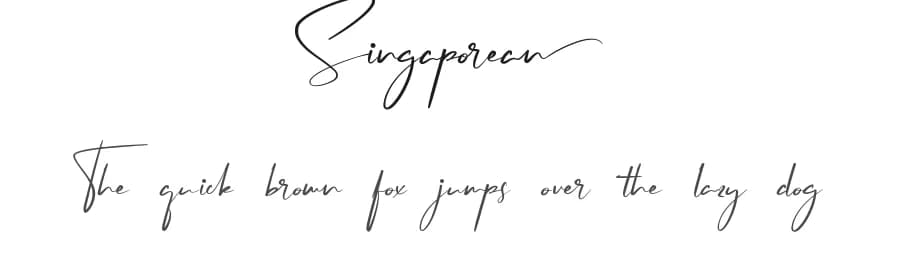 Singaporean
The quick brown fox jumps over the lazy dog